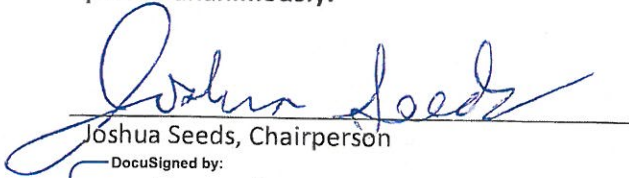 unanimously.
Joshua Seeds
Joshua Seeds, Chairperson
DocuSigned by: